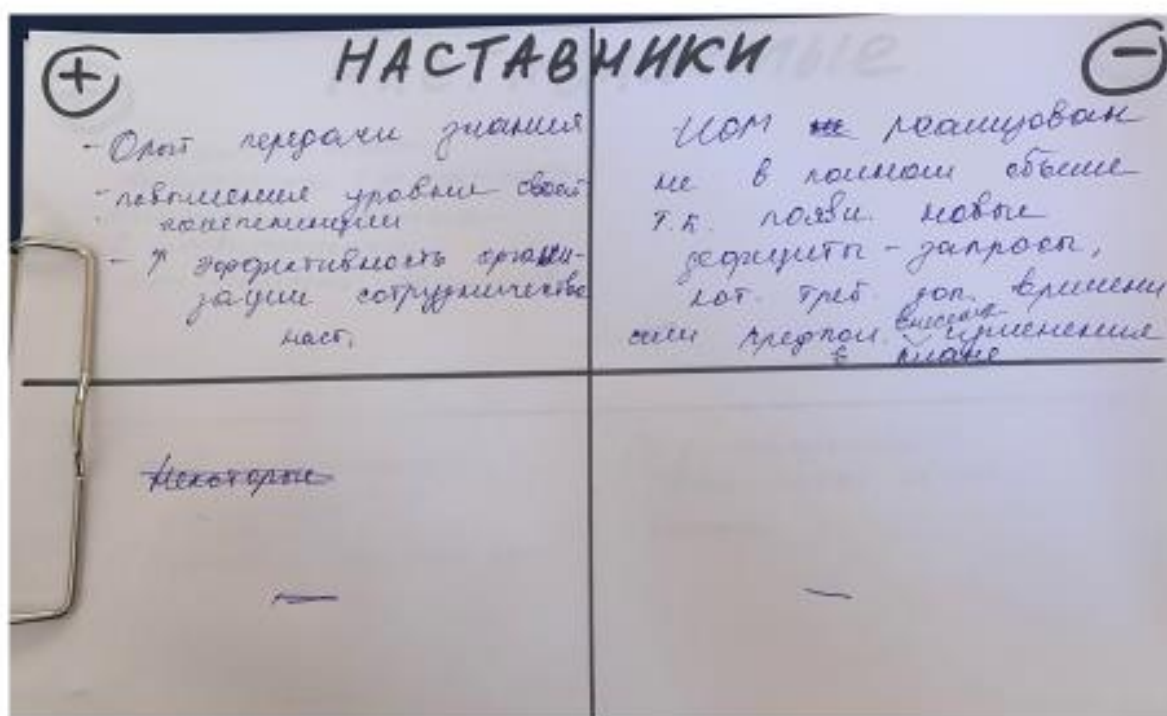 + НАСТАВНИКИ -
- Опыт передачи знания
- повышения уровня своей
компетенции
- ↑ эффективность органи-
зации сотрудничества
наст.
ИОМ не реализован
не в полном объеме
т.к. появи. новые
дефициты - запросы,
кот. треб. доп. времени
или предпол. внесения изменения
в плане
Некоторые
—
—